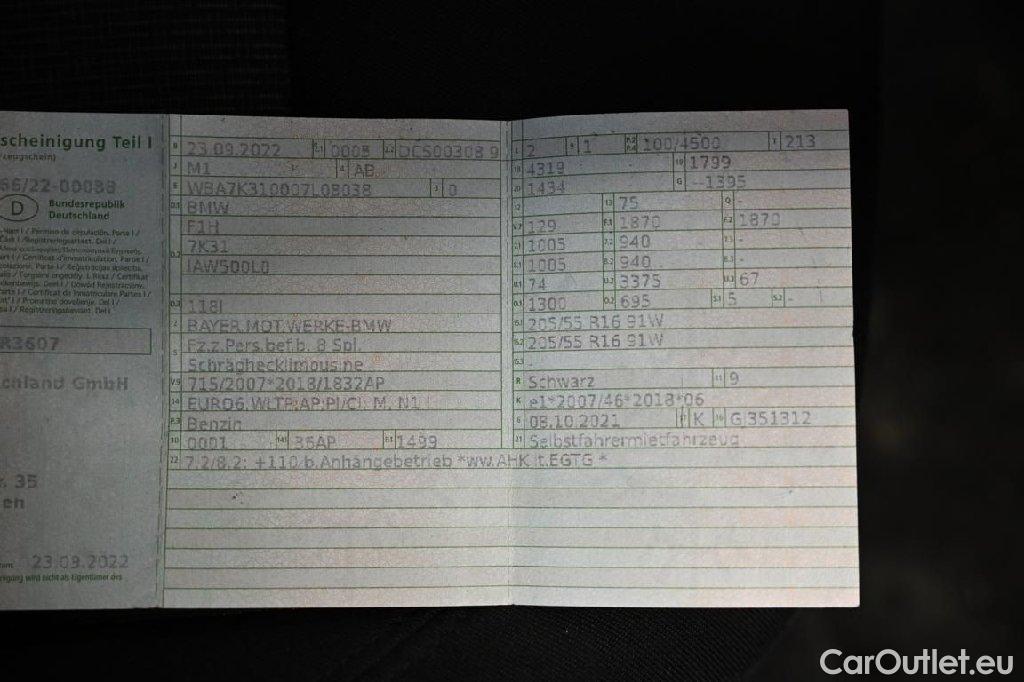 scheinigung Teil I
zeugschein)
66/22-00088
D
Bundesrepublik
Deutschland
R3607
chland GmbH
. 35
en
23.09.2022
B 23.09.2022 2.1 0005 2.2 DCS00308 9
J M1 4 AB
E WBA7K310007L08038 3 0
D.1 BMW
D.2 F1H
7K31
IAW500L0
D.3 118I
2 BAYER.MOT.WERKE-BMW
5 Fz.z.Pers.bef.b. 8 Spl.
Schräghecklimousine
V.9 715/2007*2018/1832AP
14 EURO6,WLTP,AP;PI/CI; M, N1 I
P.3 Benzin
10 0001 14.1 36AP P.1 1499
22 7.2/8.2: +110 b.Anhängebetrieb *ww.AHK lt.EGTG *
L 2 9 1 P.2 P.4 100/4500 T 213
18 4319 19 1799
20 1434 G --1395
12 - 13 75 Q -
V.7 129 F.1 1870 F.2 1870
7.1 1005 7.2 940 7.3 -
8.1 1005 8.2 940 8.3 -
U.1 74 U.2 3375 U.3 67
O.1 1300 O.2 695 S.1 5 S.2 -
15.1 205/55 R16 91W
15.2 205/55 R16 91W
15.3 -
R Schwarz 11 9
K e1*2007/46*2018*06
6 08.10.2021 17 K 16 GJ351312
21 Selbstfahrermietfahrzeug
CarOutlet.eu